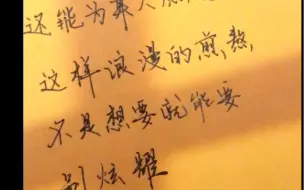 还能为某人
这样浪漫的煎熬
不是想要就能要
别炫耀